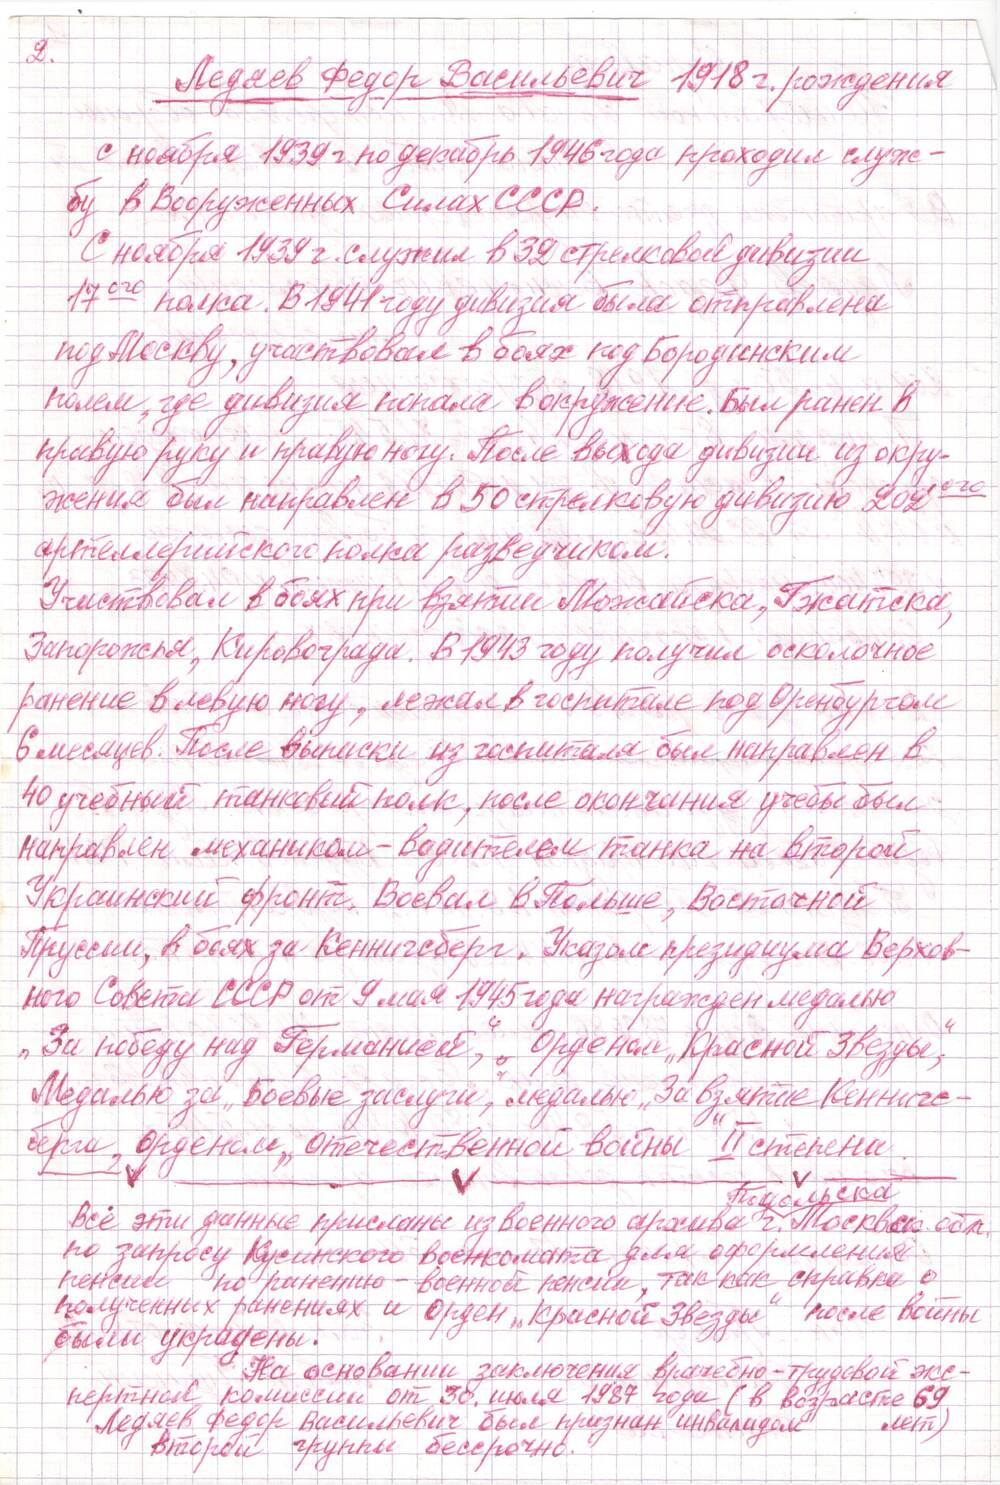 2.
Ледяев Федор Васильевич 1918 г. рождения
с ноября 1939 г по декабрь 1946 года проходил служ-
бу в Вооруженных Силах СССР.
С ноября 1939 г. служил в 32 стрелковой дивизии
17ого полка. В 1941 году дивизия была отправлена
под Москву, участвовал в боях под Бородинским
полем, где дивизия попала в окружение. Был ранен в
правую руку и правую ногу. После выхода дивизии из окру-
жения был направлен в 50 стрелковую дивизию 202ого
артеллерийского полка разведчиком.
Участвовал в боях при взятии Можайска, Гжатска,
Запорожья, Кировограда. В 1943 году получил осколочное
ранение в левую ногу, лежал в госпитале под Оренбургом
6 месяцев. После выписки из госпиталя был направлен в
40 учебный танковый полк, после окончания учебы был
направлен механиком-водителем танка на второй
Украинский фронт. Воевал в Польше, Восточной
Пруссии, в боях за Кенничсберг. Указом президиума Верхов-
ного Совета СССР от 9 мая 1945 года награжден медалью
„За победу над Германией“, Орденом „Красной Звезды“,
Медалью за „Боевые заслуги“, медалью „За взятие Кенничс-
берга, орденом „Отечественной войны“ II степени.
Все эти данные присланы из военного архива г. Подольска Москвск. обл.
по запросу Кусинского военкомата для оформления
пенсии по ранению - военной пенсии, так как справка о
полученных ранениях и орден „Красной Звезды“ после войны
были украдены.
На основании заключения врачебно-трудовой экс-
пертной комиссии от 30. июля 1987 года (в возрасте 69
лет) Ледяев Федор Васильевич был признан инвалидом
второй группы бессрочно.